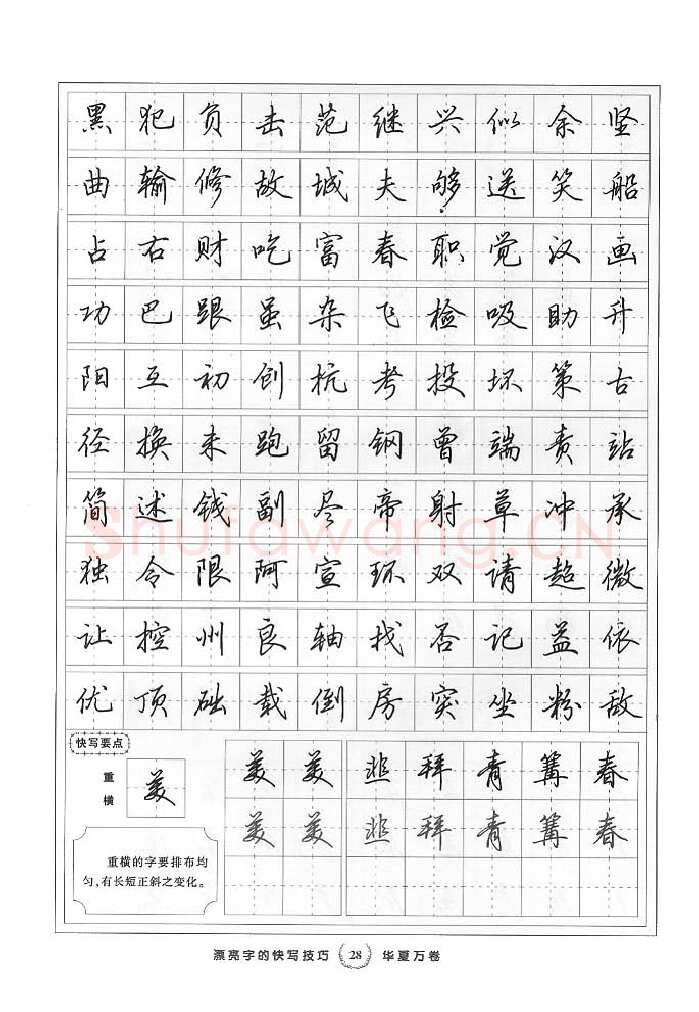 黑犯负击范继兴似余坚
曲输修故城夫够送笑船
占右财吃富春职觉汉画
功巴跟虽杂飞检吸助升
阳互初创抗考投坏策古
径换未跑留钢曾端责站
简述钱副尽帝射草冲承
Shufawang.CN
独令限阿宣环双请超微
让控州良轴找否记益依
优顶础载倒房突坐粉敌
快写要点
重横
美
美美韭拜青篝春
美美韭拜青篝春
重横的字要排布均
匀,有长短正斜之变化。
漂亮字的快写技巧 28 华夏万卷